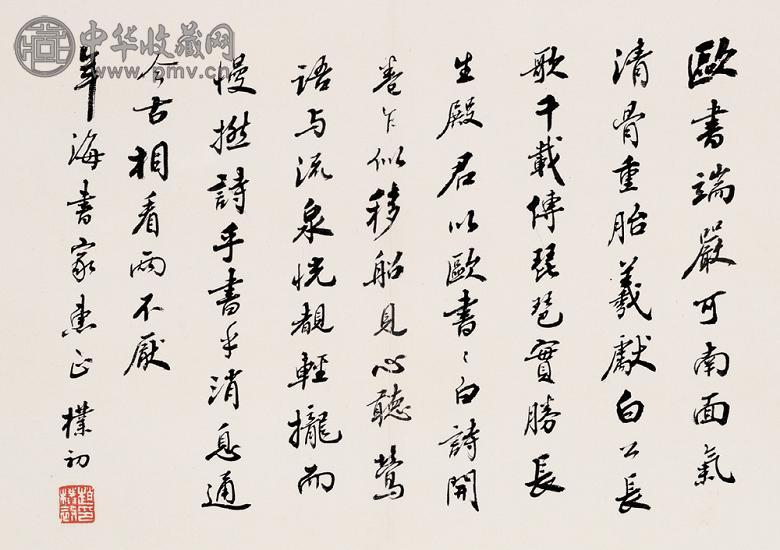 歐書端嚴可南面氣
清骨重胎羲獻白公長
歌千載傳琵琶實勝長
生殿君以歐書〻白詩開
卷乍似移船見心聽鶯
语与流泉恍覩輕攏而
慢撚詩乎書乎消息通
今古相看兩不厭
海書家惠正 樸初
趙樸初
中华收藏网
www.pmv.cn